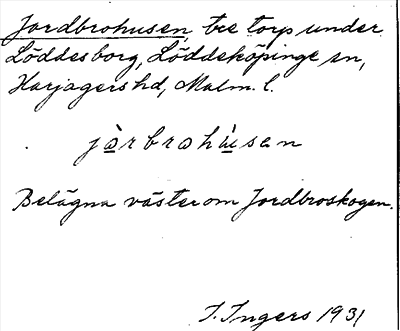 Jordbrohusen, tre torp under
Löddesborg, Löddeköpinge sn,
Harjagers hd, Malm. l.
jò̲rbrohu̲̇̀sen
Belägna väster om Jordbroskogen.
I. Ingers 1931